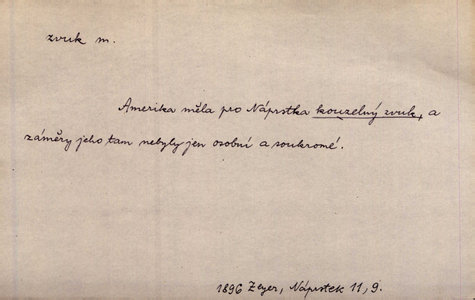 zvuk m.
Amerika měla pro Náprstka kouzelný zvuk, a
záměry jeho tam nebyly jen osobní a soukromé.
1896 Zeyer, Náprstek 11, 9.